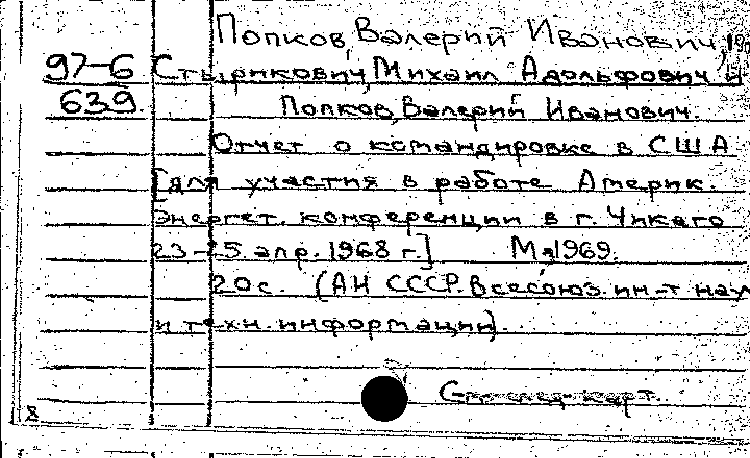 Попков, Валерий Иванович,
97-6 Стырикович, Михаил Адольфович и
639. Попков, Валерий Иванович.
Отчет о командировке в США
[для участия в работе Америк.
Энергет. конференции в г. Чикаго
23-25 апр. 1968 г.] М., 1969.
20 с. (АН СССР. Всесоюз. ин-т науч
и техн. информации).
X